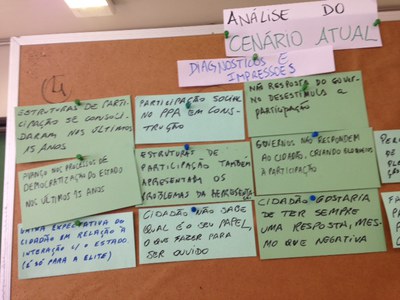 ANÁLISE DO
CENÁRIO ATUAL
DIAGNÓSTICOS E
IMPRESSÕES
ESTRUTURAS DE PARTI-
CIPAÇÃO SE CONSOLI-
DARAM NOS ÚLTIMOS
15 ANOS
PARTICIPAÇÃO SOCIAL
NO PPA EM CONS-
TRUÇÃO
NÃO RESPOSTA DO GOVER-
NO DESESTIMULA A
PARTICIPAÇÃO
AVANÇO NOS PROCESSOS DE
DEMOCRATIZAÇÃO DO ESTADO
NOS ÚLTIMOS 15 ANOS
ESTRUTURAS DE
PARTICIPAÇÃO TAMBÉM
APRESENTAM OS
PROBLEMAS DA
GOVERNOS NÃO RESPONDEM
AO CIDADÃO, CRIANDO
A PARTICIPAÇÃO
EXPECTATIVA DO
CIDADÃO EM RELAÇÃO À
INTERAÇÃO C/ O ESTADO.
(É SÓ PARA A ELITE)
CIDADÃO NÃO SABE
QUAL É O SEU PAPEL,
O QUE FAZER PARA
SER OUVIDO
CIDADÃO GOSTARIA
DE TER SEMPRE
UMA RESPOSTA, MES-
MO QUE NEGATIVA